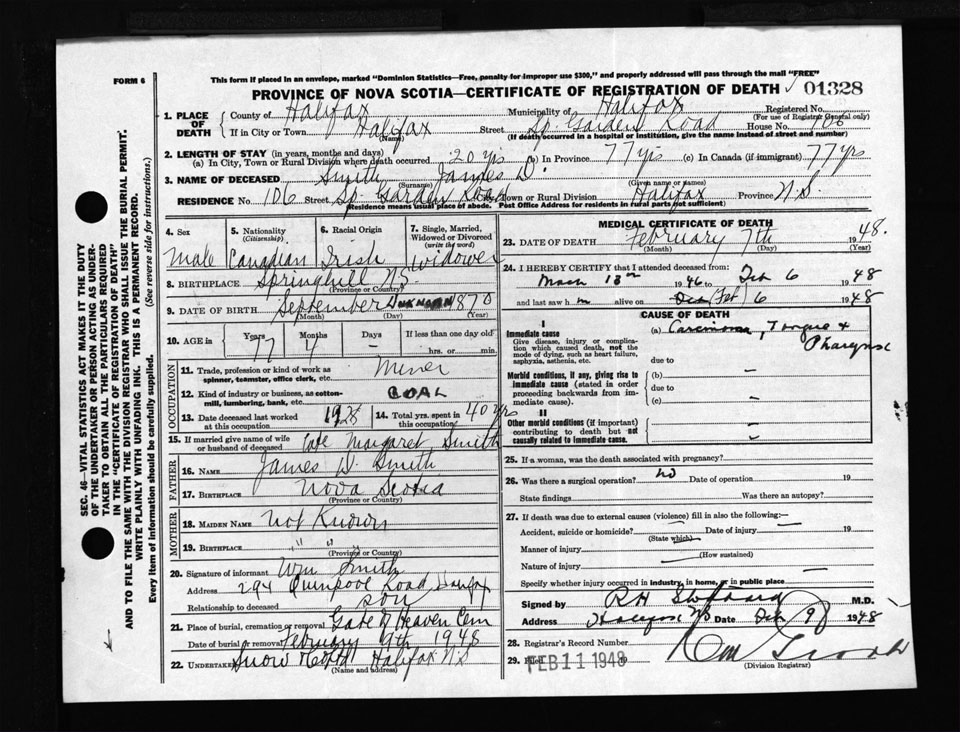 FORM 6
This form if placed in an envelope, marked "Dominion Statistics—Free, penalty for improper use $300," and properly addressed will pass through the mail "FREE"
PROVINCE OF NOVA SCOTIA—CERTIFICATE OF REGISTRATION OF DEATH 01328
SEC. 46—VITAL STATISTICS ACT MAKES IT THE DUTY OF THE UNDERTAKER OR PERSON ACTING AS UNDERTAKER TO OBTAIN ALL THE PARTICULARS REQUIRED IN THE "CERTIFICATE OF REGISTRATION OF DEATH" AND TO FILE THE SAME WITH THE DIVISION REGISTRAR WHO SHALL ISSUE THE BURIAL PERMIT.
WRITE PLAINLY WITH UNFADING INK. THIS IS A PERMANENT RECORD.
Every item of information should be carefully supplied. (See reverse side for instructions.)
1. PLACE OF DEATH County of Halifax Municipality of Halifax Registered No.
(For use of Registrar General only)
If in City or Town Halifax Street Sp Garden Road House No. 106
(Name) (If death occurred in a hospital or institution, give the name instead of street and number)
2. LENGTH OF STAY (in years, months and days)
(a) In City, Town or Rural Division where death occurred 20 yrs (b) In Province 77 yrs (c) In Canada (if immigrant) 77 yrs
3. NAME OF DECEASED Smith James D.
(Surname) (Given name or names)
RESIDENCE No. 106 Street Sp Garden Road City, Town or Rural Division Halifax Province N.S.
(Residence means usual place of abode. Post Office Address for residents in rural parts not sufficient)
4. Sex 5. Nationality (Citizenship) 6. Racial Origin 7. Single, Married, Widowed or Divorced (write the word)
Male Canadian Irish widower
8. BIRTHPLACE Springhill N.S.
(Province or Country)
9. DATE OF BIRTH September UNKNOWN 1870
(Month) (Day) (Year)
10. AGE in Years Months Days If less than one day old
77 4 – hrs. or min.
OCCUPATION
11. Trade, profession or kind of work as spinner, teamster, office clerk, etc. Miner
12. Kind of industry or business, as cotton-mill, lumbering, bank, etc. COAL
13. Date deceased last worked at this occupation 1928 14. Total yrs. spent in this occupation 40 yrs
15. If married give name of wife or husband of deceased Late Margaret Smith
FATHER
16. Name James D. Smith
17. Birthplace Nova Scotia
(Province or Country)
MOTHER
18. MAIDEN NAME Not Known
19. Birthplace " "
(Province or Country)
20. Signature of informant Wm Smith
Address 294 Quinpool Road Halifax
Relationship to deceased son
21. Place of burial, cremation or removal Gate of Heaven Cem
Date of burial or removal February 9th 1948
22. UNDERTAKER Snow & Co Ltd Halifax N.S
(Name and address)
MEDICAL CERTIFICATE OF DEATH
23. DATE OF DEATH February 7th 1948.
(Month) (Day) (Year)
24. I HEREBY CERTIFY that I attended deceased from:
March 13th 1946 to Feb 6 1948
and last saw h m alive on (Feb) 6 1948
CAUSE OF DEATH
I
Immediate cause (a) Carcinoma, Tongue & Pharynx
Give disease, injury or complication which caused death, not the mode of dying, such as heart failure, asphyxia, asthenia, etc. due to
Morbid conditions, if any, giving rise to immediate cause (stated in order proceeding backwards from immediate cause). (b) –
due to
(c) –
II
Other morbid conditions (if important) contributing to death but not causally related to immediate cause. –
–
25. If a woman, was the death associated with pregnancy?
26. Was there a surgical operation? No Date of operation 19
State findings Was there an autopsy?
27. If death was due to external causes (violence) fill in also the following:–
Accident, suicide or homicide? Date of injury 19
(State which)
Manner of injury
(How sustained)
Nature of injury
Specify whether injury occurred in industry, in home, or in public place
Signed by R H Stoddard M.D.
Address Halifax NS Date Feb 9 1948
28. Registrar's Record Number
29. Filed FEB 11 1948 19
(Division Registrar)